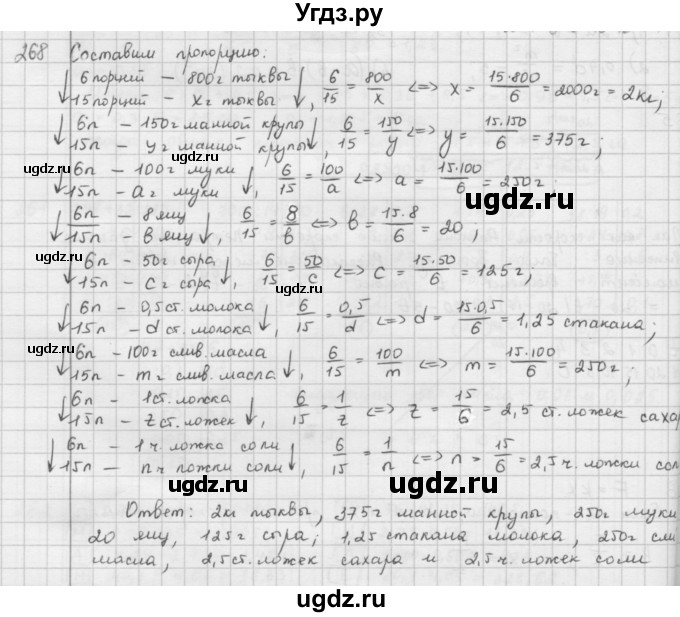 Угдз.ру
268 Составим пропорцию:
↓ 6 порций – 800г тыквы ↓
15 порций – x г тыквы, 6/15 = 800/x <=> x = 15·800/6 = 2000г = 2кг;
↓ 6п – 150г манной крупы ↓
15п – y г манной крупы, 6/15 = 150/y <=> y = 15·150/6 = 375г;
↓ 6п – 100г муки ↓
15п – a г муки, 6/15 = 100/a <=> a = 15·100/6 = 250г;
↓ 6п – 8 яиц ↓
15п – в яиц, 6/15 = 8/в <=> в = 15·8/6 = 20,
↓ 6п – 50г сыра ↓
15п – c г сыра, 6/15 = 50/c <=> c = 15·50/6 = 125г;
↓ 6п – 0,5ст. молока ↓
15п – d ст. молока, 6/15 = 0,5/d <=> d = 15·0,5/6 = 1,25 стакана;
↓ 6п – 100г слив. масла ↓
15п – m г слив. масла, 6/15 = 100/m <=> m = 15·100/6 = 250г;
↓ 6п – 1ст. ложка ↓
15п – z ст. ложек, 6/15 = 1/z <=> z = 15/6 = 2,5 ст. ложек сахар
↓ 6п – 1 ч. ложка соли ↓
15п – n ч ложки соли, 6/15 = 1/n <=> n = 15/6 = 2,5 ч. ложки сол
Ответ: 2кг тыквы, 375г манной крупы, 250г муки
20 яиц, 125г сыра; 1,25 стакана молока, 250г сли
масла, 2,5 ст. ложек сахара и 2,5 ч. ложек соли
ugdz.ru
ugdz.ru
ugdz.ru
ugdz.ru
ugdz.ru
ugdz.ru
ugdz.ru
ugdz.ru
ugdz.ru
ugdz.ru
ugdz.ru
ugdz.ru